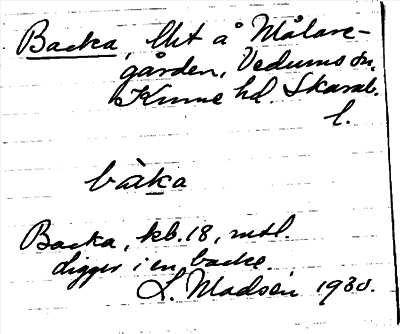 Backa, lht å Målare-
gården, Vedums sn,
Kinne hd. Skarab.
l.
bàka
Backa, kb. 18, mtl.
ligger i en backe.
L. Madsén 1930.